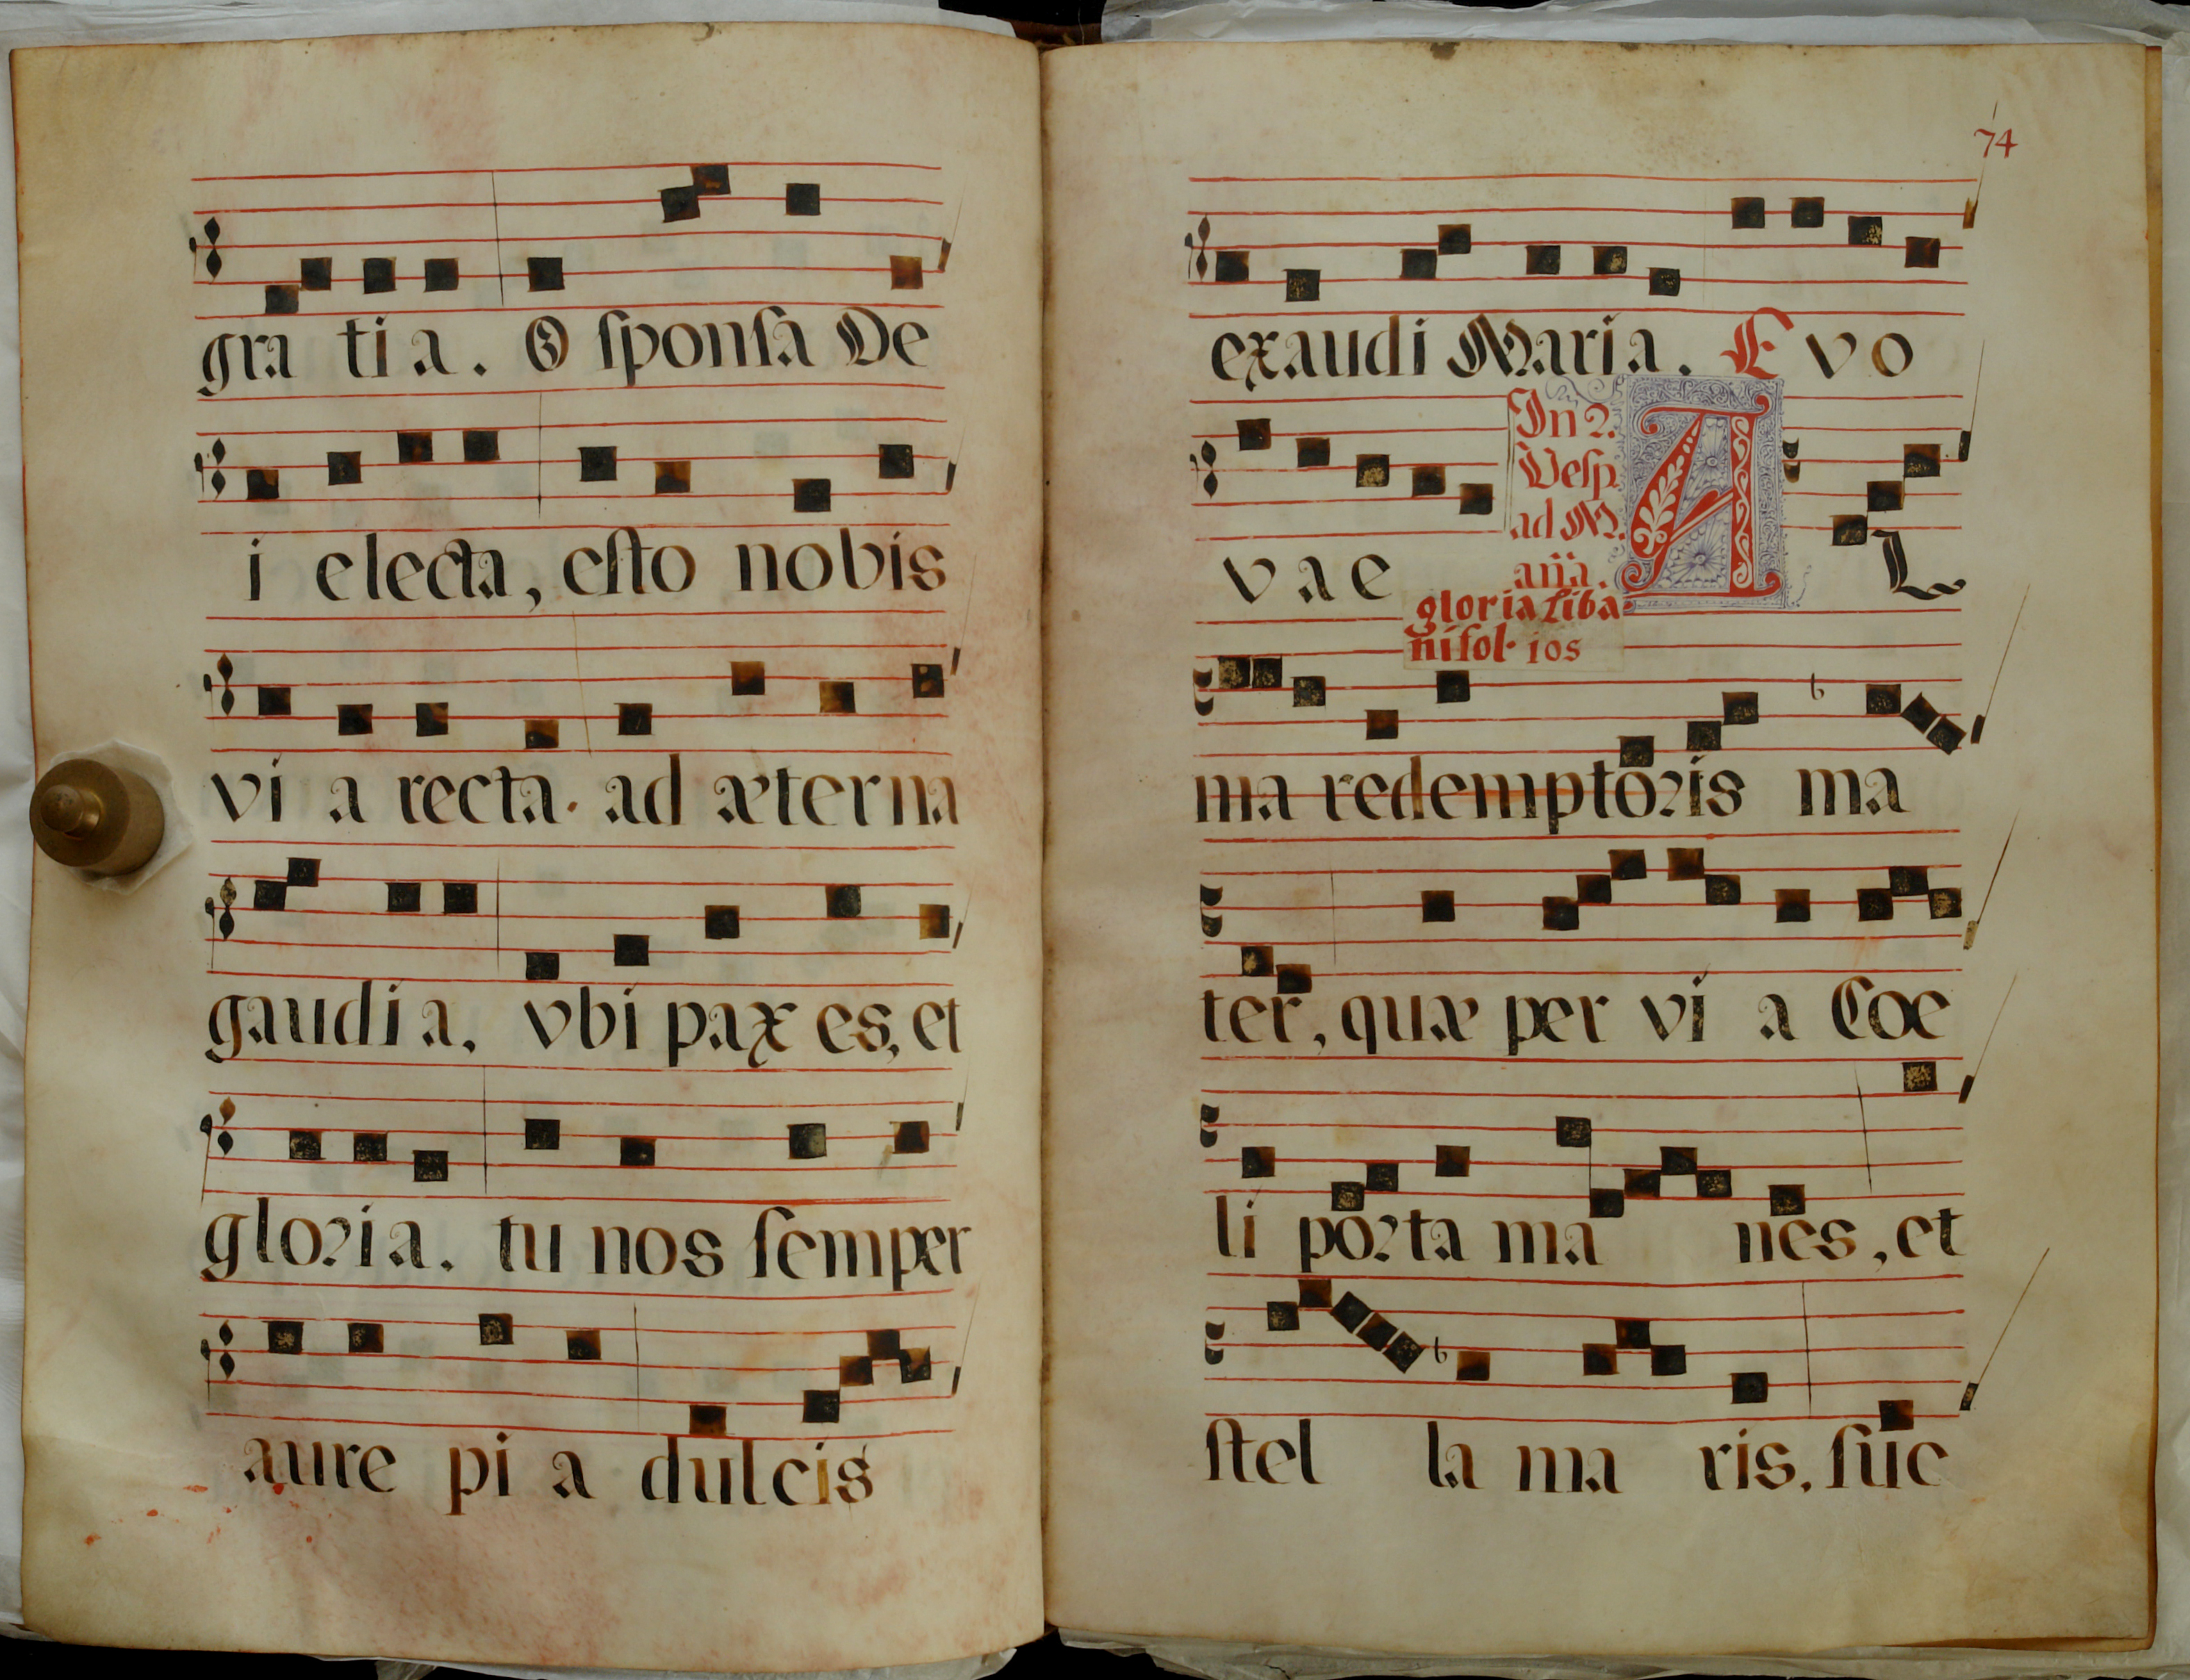 gra ti a. O sponsa De
i electa, esto nobis
vi a recta. ad æterna
gaudi a, vbi pax es, et
gloria. tu nos semper
aure pi a dulcis
74
exaudi Maria. E v o
v a e
In 2.
Vesp.
ad M.
aña.
gloria Liba
ni fol. 105
A L
ma redemptoris ma
ter, quæ per vi a Coe
li porta ma nes, et
stel la ma ris, suc